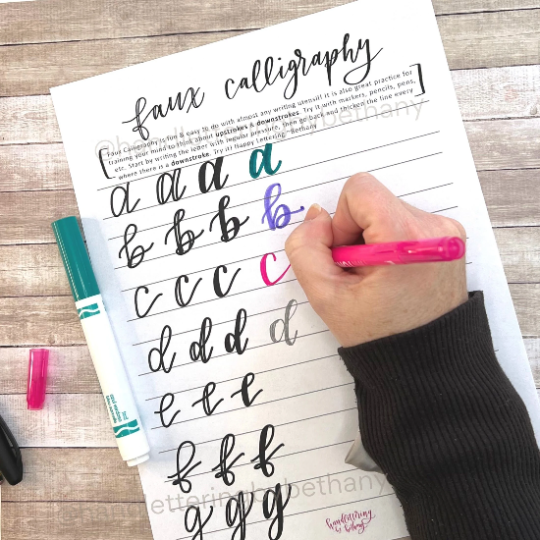 faux calligraphy
Faux Calligraphy is fun & easy to do with almost any writing utensil! It is also great practice for
training your mind to think about upstrokes & downstrokes. Try it with markers, pencils, pens,
etc. Start by writing the letter with regular pressure, then go back and thicken the line every
where there is a downstroke. Try it! Happy Lettering, ~Bethany
a a a a
b b b b
c c c c
d d d d
e e e
f f f
g g g
handlettering
by bethany